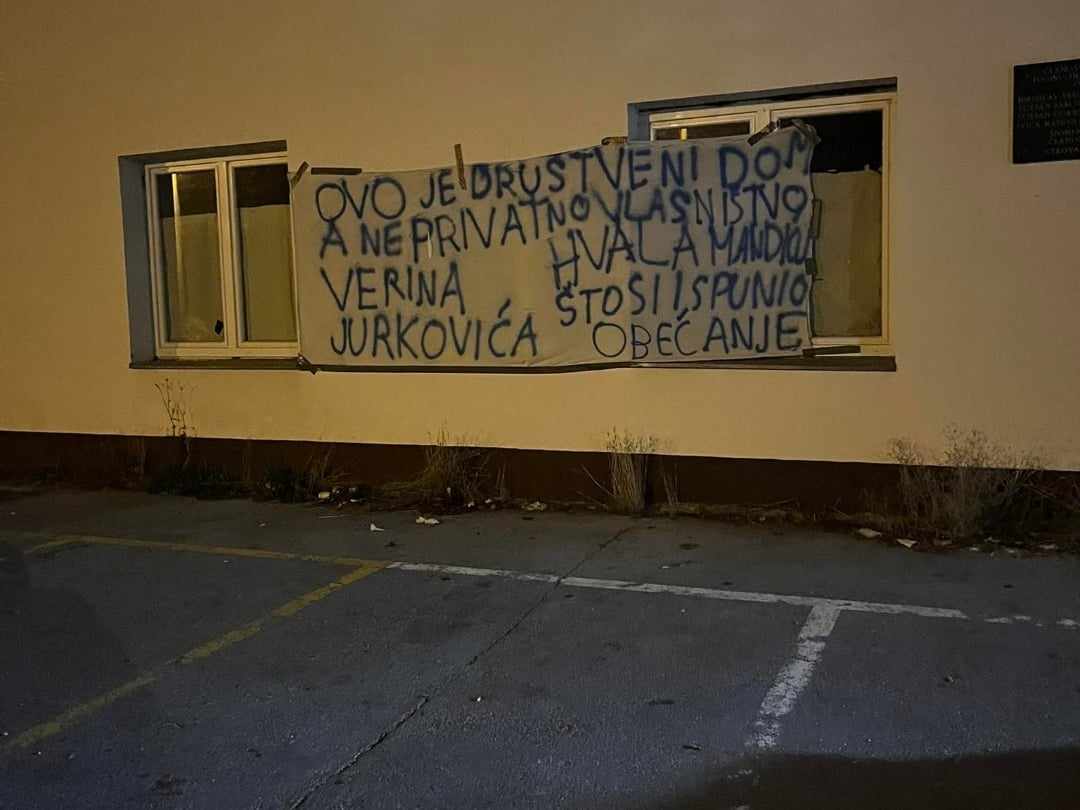 OVO JE DRUŠTVENI DOM
A NE PRIVATNO VLASNIŠTVO
VERINA
JURKOVIĆA
HVALA MANDIĆU
ŠTO SI ISPUNIO
OBEĆANJE